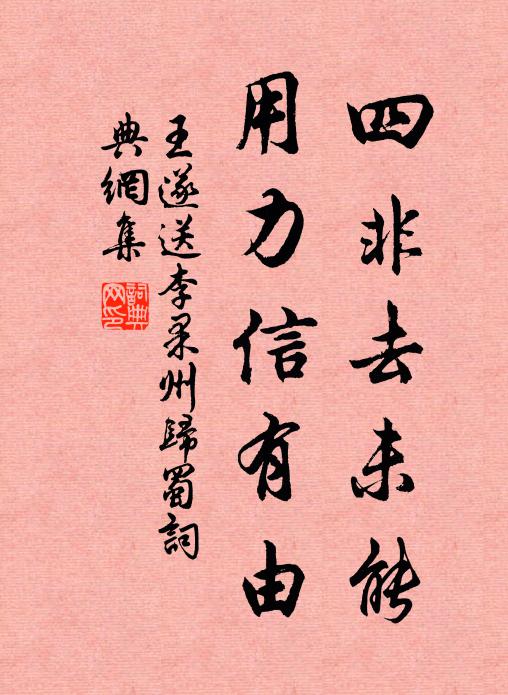 四非去未能
用力信有由
王遂送李果州歸蜀詞
典網集
詞典
网印